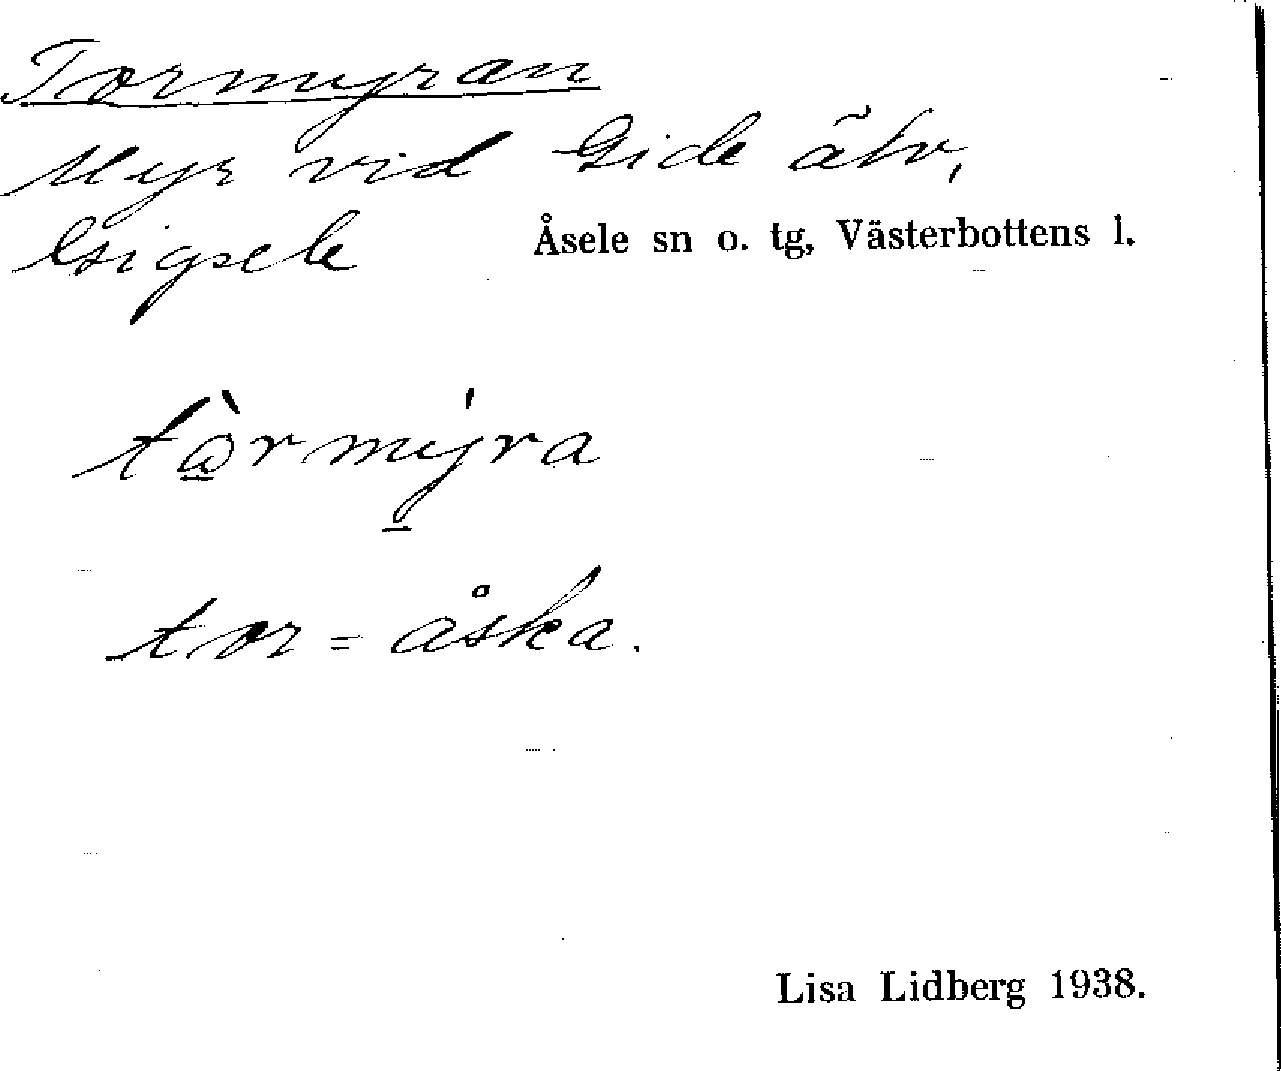 Tormyran
Myr vid Gide älv,
Gigsele Åsele sn o. tg, Västerbottens l.
tòrmýra
tor = åska.
Lisa Lidberg 1938.